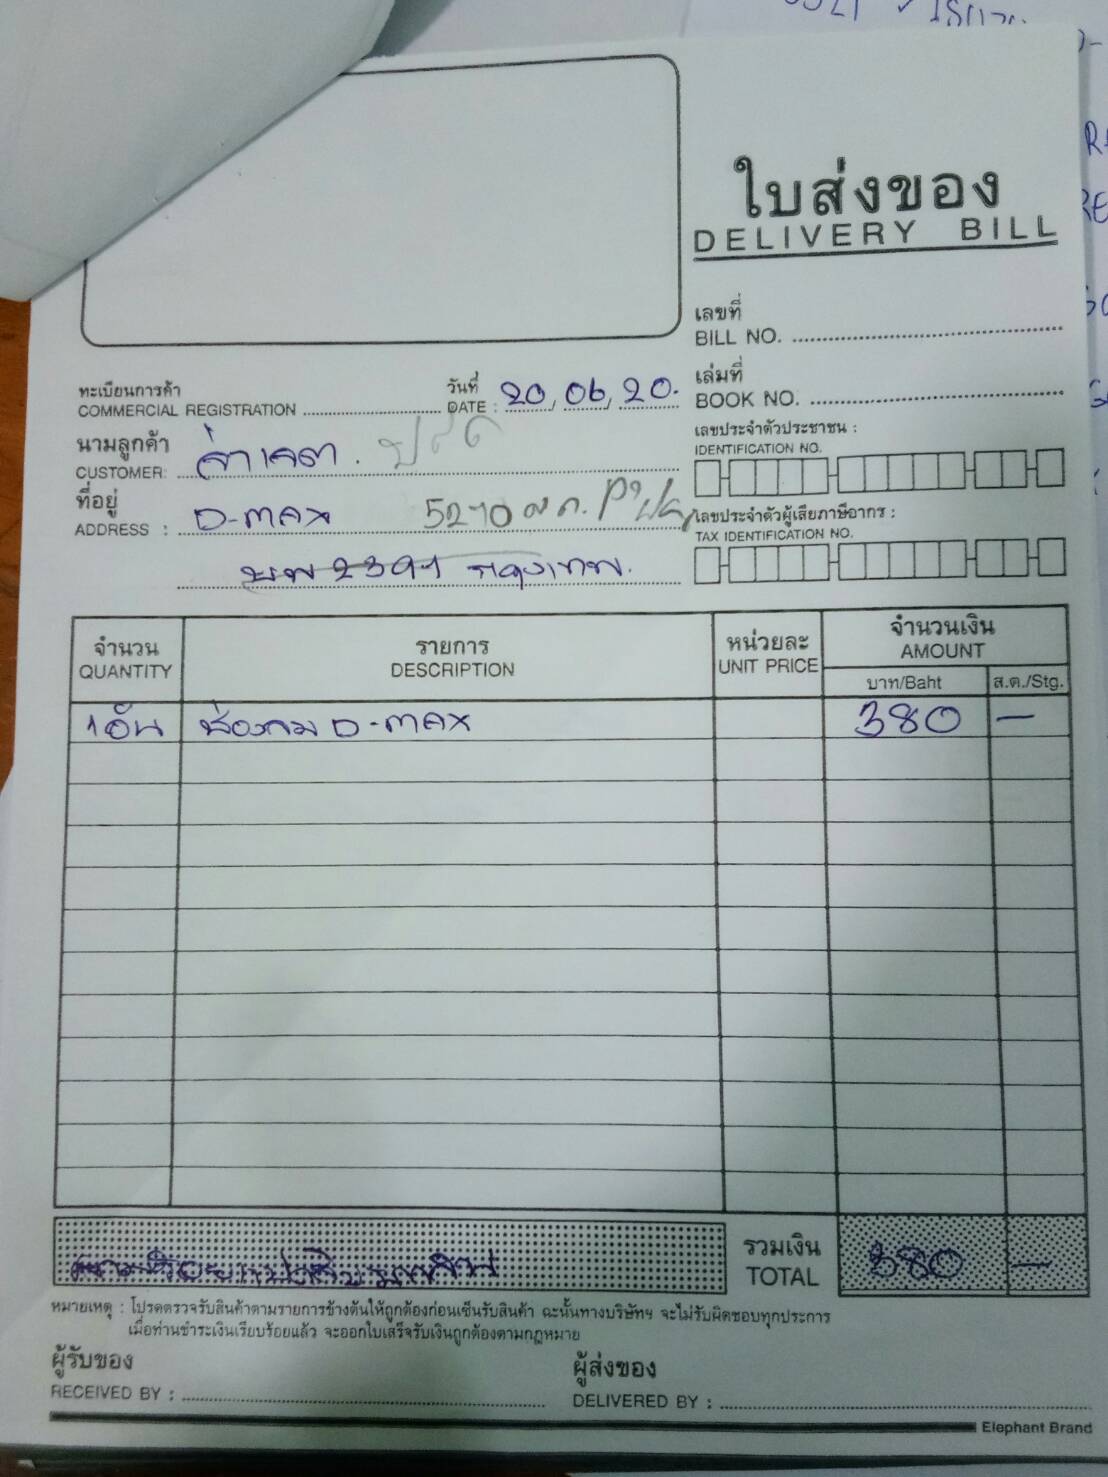 ใบส่งของ
DELIVERY BILL
เลขที่
BILL NO.
ทะเบียนการค้า
COMMERCIAL REGISTRATION
วันที่
DATE : 20, 06, 20.
เล่มที่
BOOK NO.
นามลูกค้า
CUSTOMER:
เลขประจำตัวประชาชน :
IDENTIFICATION NO.
ที่อยู่
ADDRESS : D-MAX 5270
เลขประจำตัวผู้เสียภาษีอากร :
TAX IDENTIFICATION NO.
กรุงเทพ.
จำนวน
QUANTITY
รายการ
DESCRIPTION
หน่วยละ
UNIT PRICE
จำนวนเงิน
AMOUNT
บาท/Baht
ส.ต./Stg.
1 อัน ช่องลม D-MAX 380 —
สามร้อยแปดสิบบาทถ้วน
รวมเงิน
TOTAL
380 —
หมายเหตุ : โปรดตรวจรับสินค้าตามรายการข้างต้นให้ถูกต้องก่อนเซ็นรับสินค้า ฉะนั้นทางบริษัทฯ จะไม่รับผิดชอบทุกประการ
เมื่อท่านชำระเงินเรียบร้อยแล้ว จะออกใบเสร็จรับเงินถูกต้องตามกฎหมาย
ผู้รับของ
RECEIVED BY :
ผู้ส่งของ
DELIVERED BY :
Elephant Brand